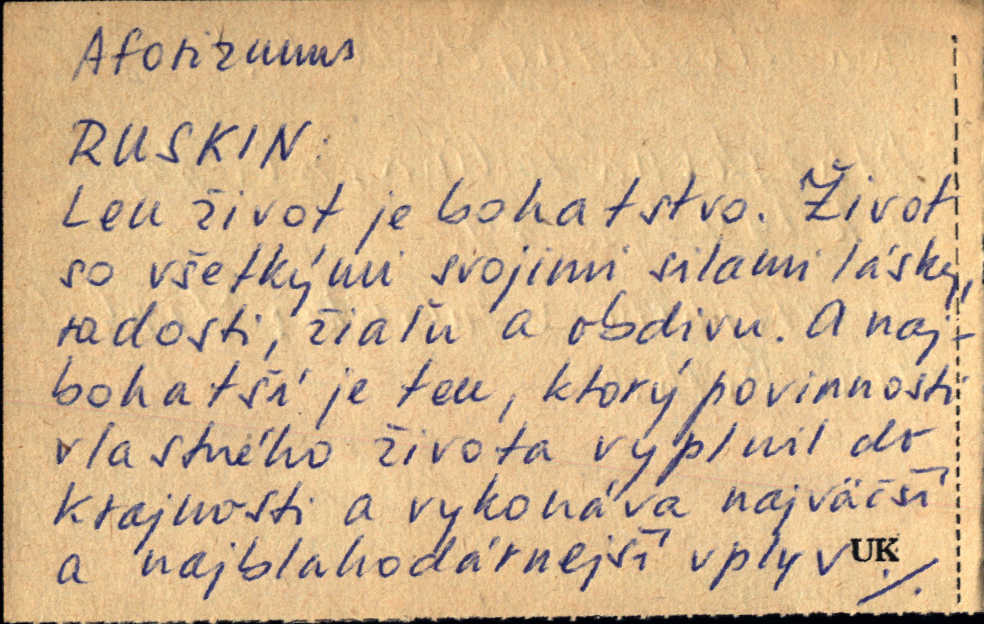 Aforizmus
RUSKIN:
Len život je bohatstvo. Život
so všetkými svojimi silami lásky,
radosti, žiaľu a obdivu. A naj-
bohatší je ten, ktorý povinnosti
vlastného života vyplnil do
krajnosti a vykonáva najväčší
a najblahodárnejší vplyv.
UK